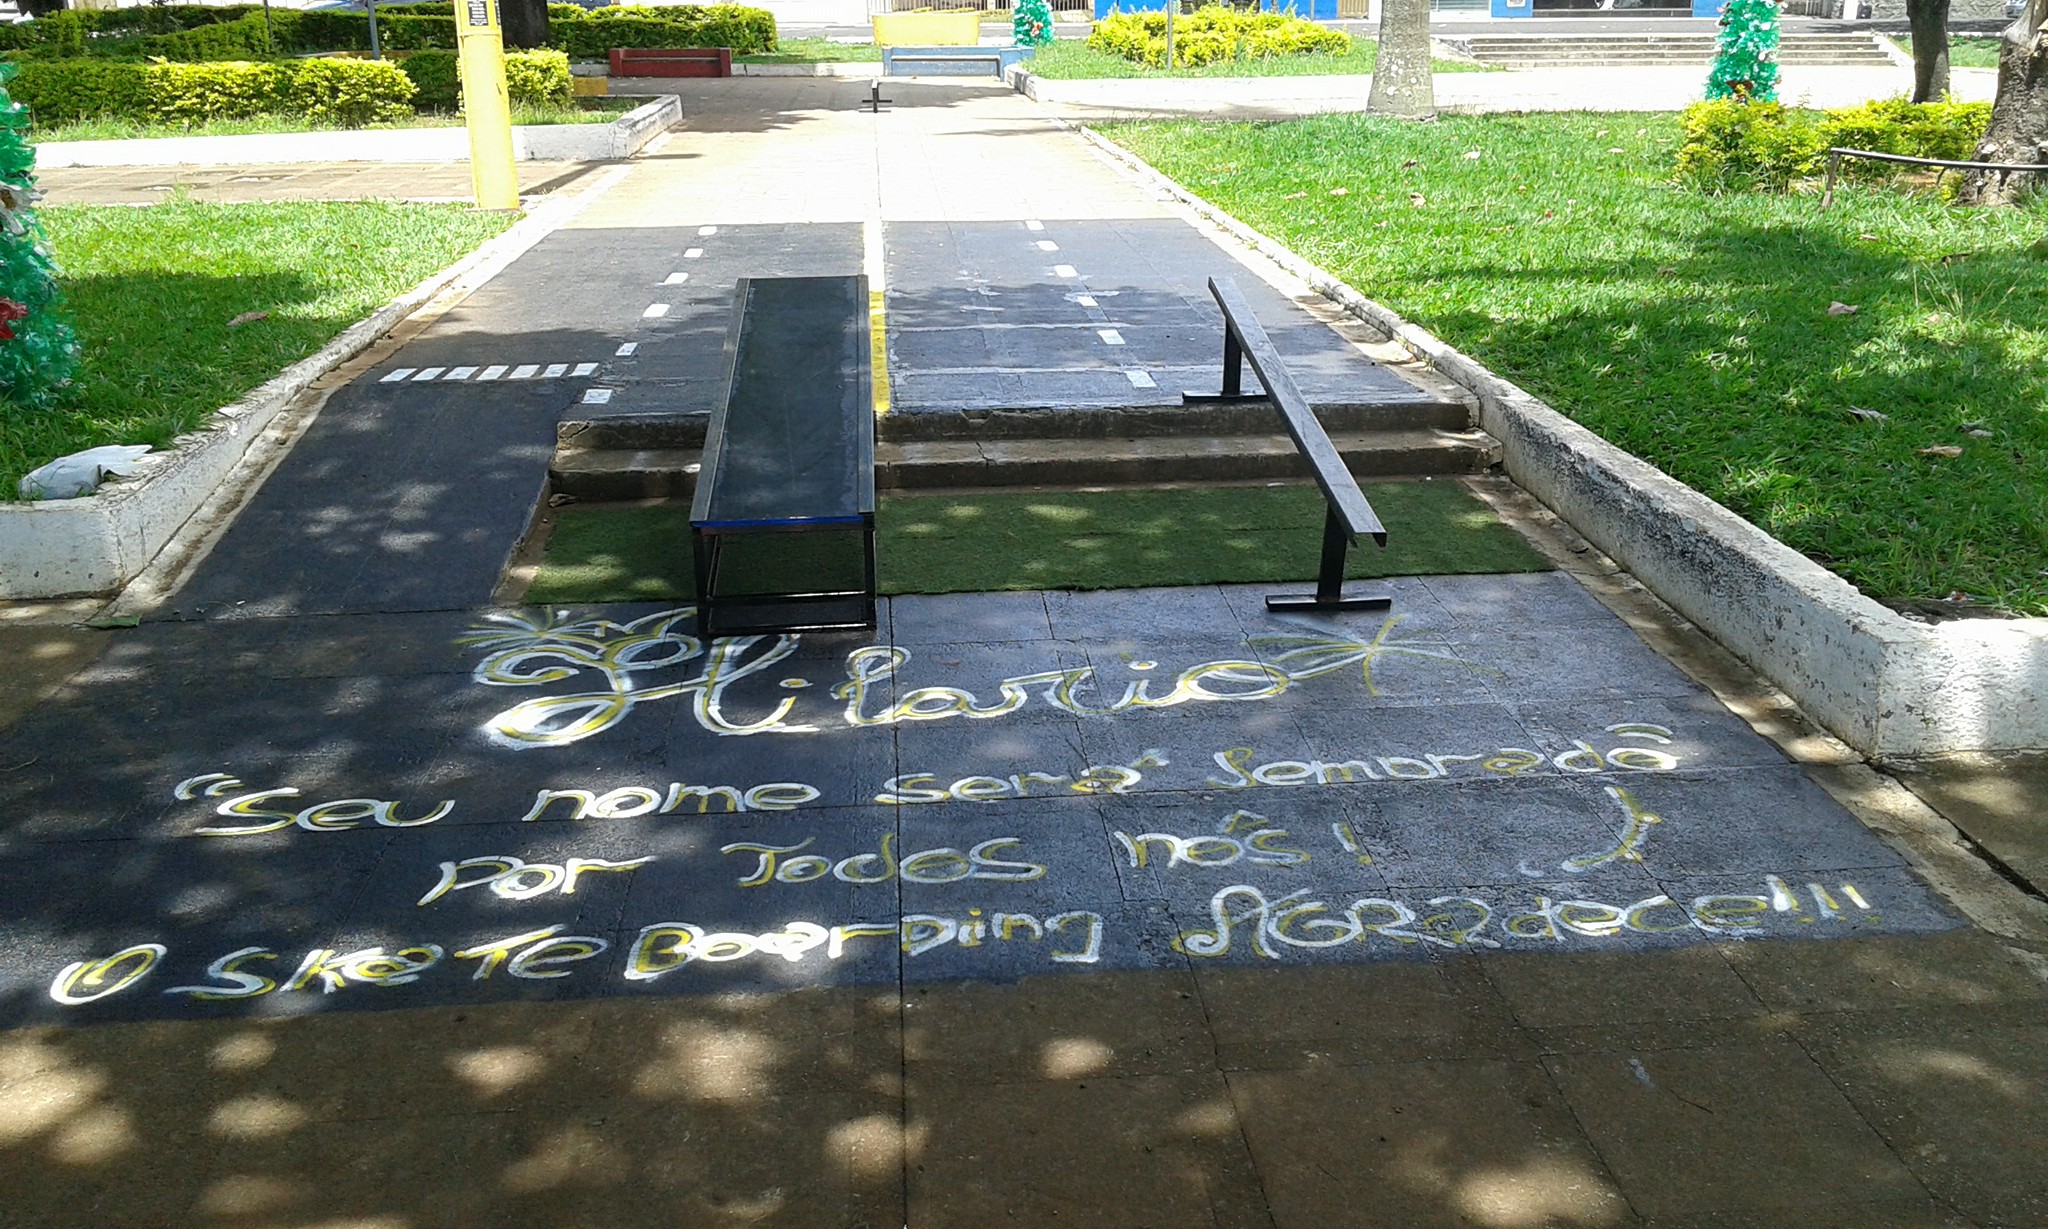 Hilario
"Seu nome será lembrado"
por Todos nôs! :)
O SKATEBOARDing AGRADece!!!